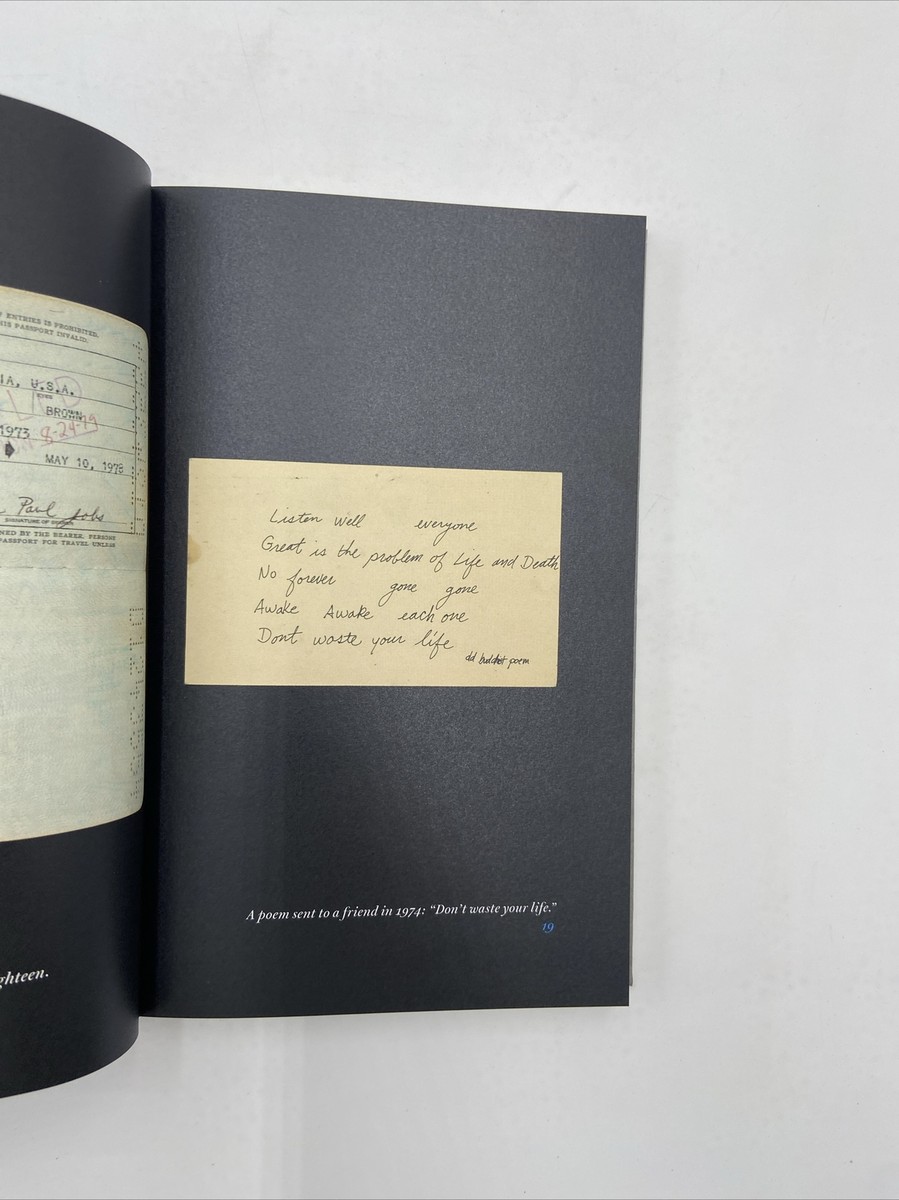 Y ENTRIES IS PROHIBITED.
HIS PASSPORT INVALID.
IA, U.S.A.
BROWN
1973
8-24-79
MAY 10, 1978
Paul Jobs
SIGNATURE OF
NED BY THE BEARER. PERSONS
PASSPORT FOR TRAVEL UNLESS
ghteen.
Listen well everyone
Great is the problem of Life and Death
No forever gone gone
Awake Awake each one
Dont waste your life
old buddhist poem
A poem sent to a friend in 1974: “Don’t waste your life.”
19